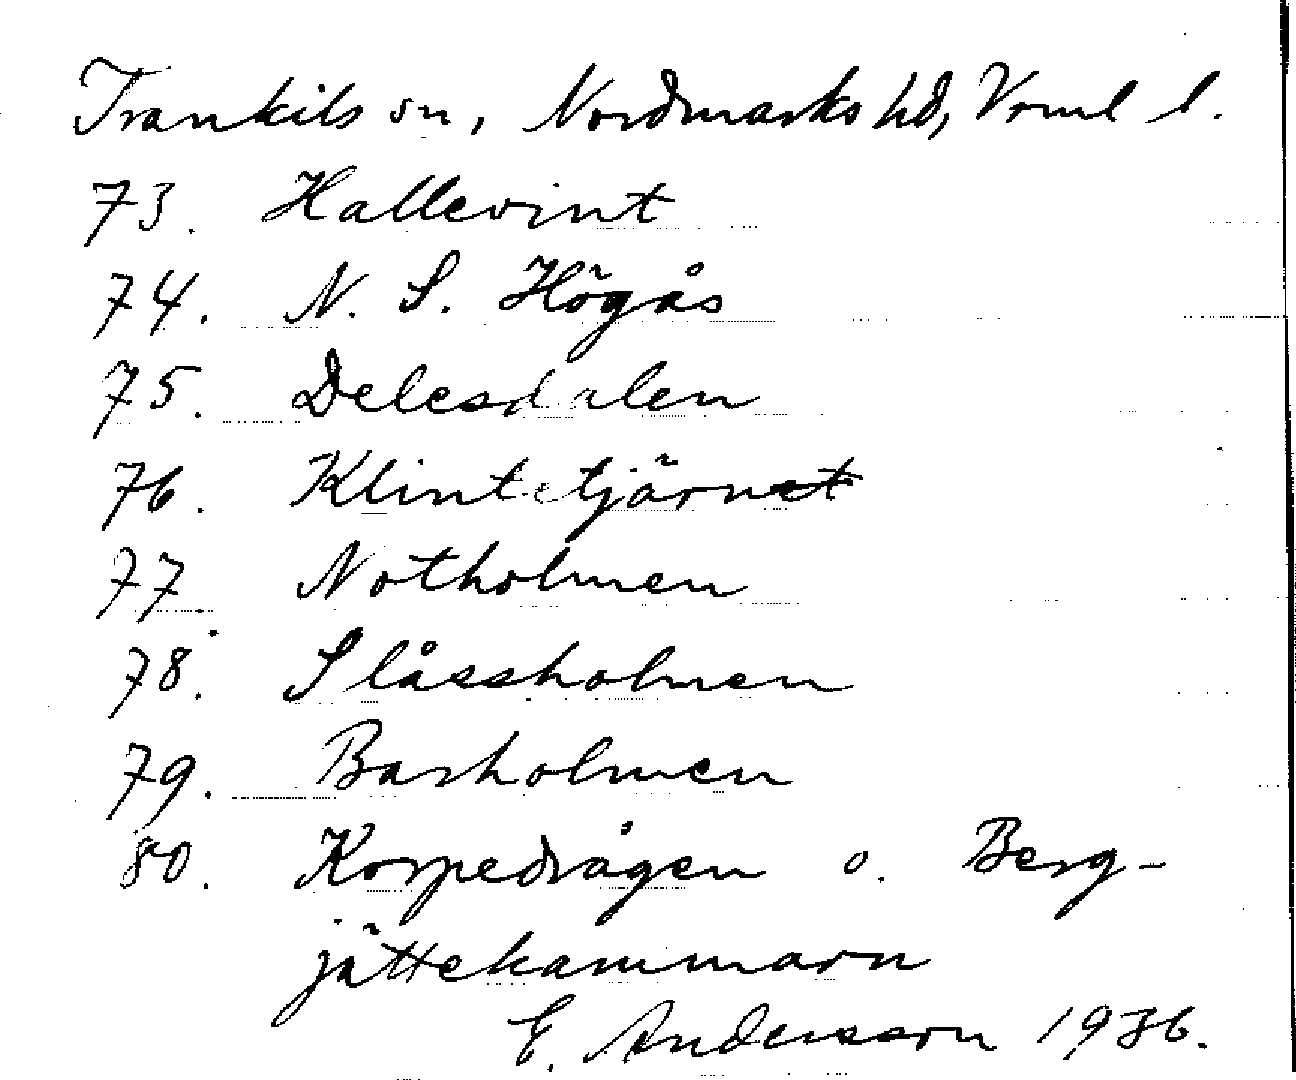 Trankils sn, Nordmarks hd, Vrml l.
73. Hallevint
74. N. S. Högås
75. Delesdalen
76. Klintetjärnet
77. Notholmen
78. Slåssholmen
79. Barholmen
80. Korpedrågen o. Berg-
jättekammarn
E. Andersson 1936.